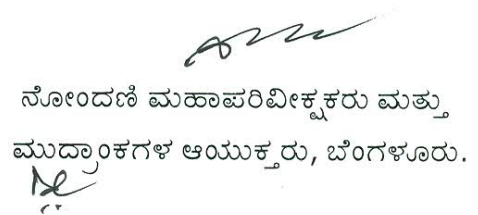 ನೋಂದಣಿ ಮಹಾಪರಿವೀಕ್ಷಕರು ಮತ್ತು
ಮುದ್ರಾಂಕಗಳ ಆಯುಕ್ತರು, ಬೆಂಗಳೂರು.